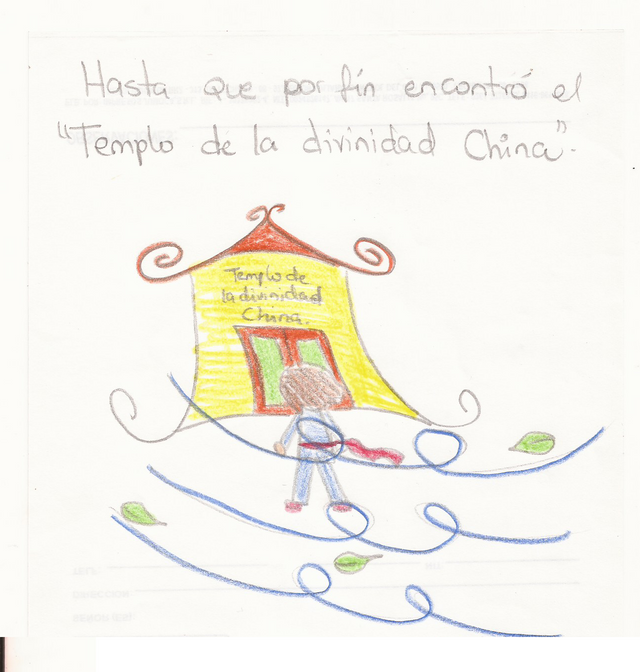 Hasta que por fín encontró el
"Templo de la divinidad China".
Templo de
la divinidad
China.